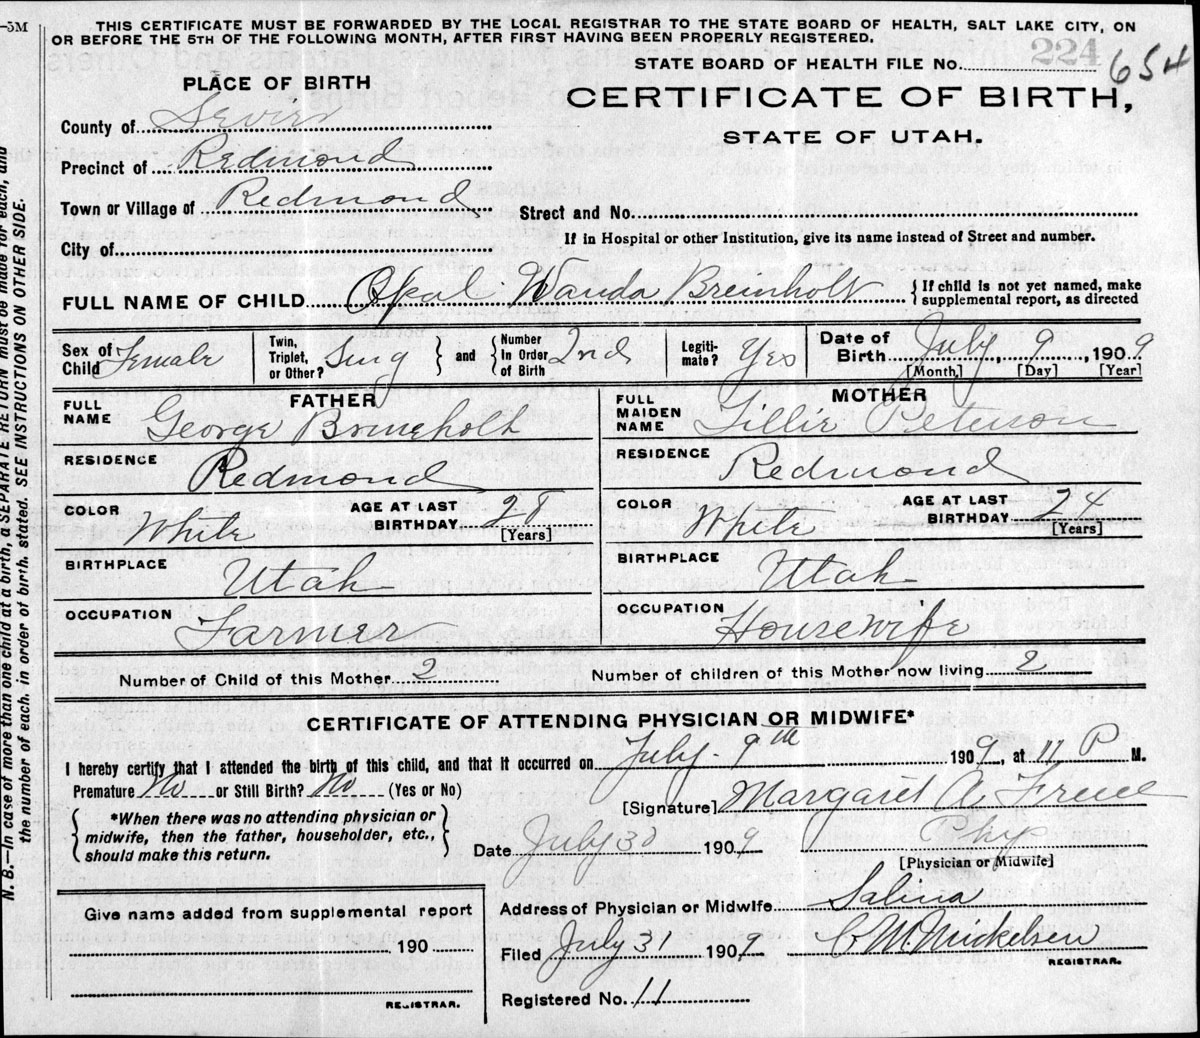 -5M
THIS CERTIFICATE MUST BE FORWARDED BY THE LOCAL REGISTRAR TO THE STATE BOARD OF HEALTH, SALT LAKE CITY, ON
OR BEFORE THE 5TH OF THE FOLLOWING MONTH, AFTER FIRST HAVING BEEN PROPERLY REGISTERED.
224
STATE BOARD OF HEALTH FILE No. 654
PLACE OF BIRTH
CERTIFICATE OF BIRTH,
STATE OF UTAH.
County of Sevier
Precinct of Redmond
Town or Village of Redmond
Street and No.
City of
If in Hospital or other Institution, give its name instead of Street and number.
FULL NAME OF CHILD Opal Wanda Breinholt { If child is not yet named, make
supplemental report, as directed
Sex of Child Female
Twin, Triplet, or Other? Sing } and { Number In Order of Birth 2nd
Legiti- mate? Yes
Date of Birth July, 9, 1909
[Month] [Day] [Year]
FATHER
FULL NAME George Brineholt
RESIDENCE Redmond
COLOR White AGE AT LAST BIRTHDAY 28 [Years]
BIRTHPLACE Utah
OCCUPATION Farmer
MOTHER
FULL MAIDEN NAME Tillie Peterson
RESIDENCE Redmond
COLOR White AGE AT LAST BIRTHDAY 24 [Years]
BIRTHPLACE Utah
OCCUPATION Housewife
Number of Child of this Mother 2 Number of children of this Mother now living 2
CERTIFICATE OF ATTENDING PHYSICIAN OR MIDWIFE*
I hereby certify that I attended the birth of this child, and that it occurred on July 9th 1909, at 11 P M.
Premature No or Still Birth? No (Yes or No)
[Signature] Margaret A.
{ *When there was no attending physician or
midwife, then the father, householder, etc.,
should make this return. }
Date July 30 1909 Phys
[Physician or Midwife]
Address of Physician or Midwife Salina
Give name added from supplemental report
190
REGISTRAR.
Filed July 31 1909 C W Mickelsen
REGISTRAR.
Registered No. 11
N. B.—In case of more than one child at a birth, a SEPARATE RETURN must be made for each, and
the number of each, in order of birth, stated. SEE INSTRUCTIONS ON OTHER SIDE.